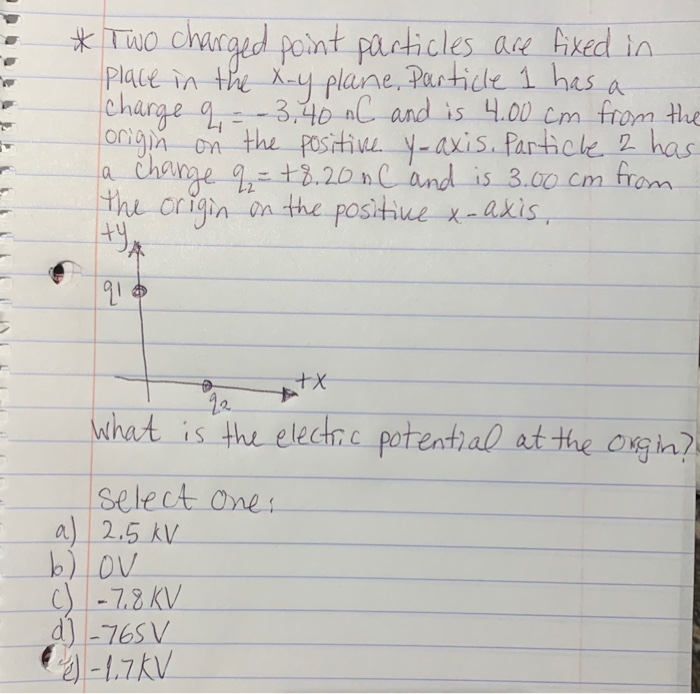 * Two charged point particles are fixed in
place in the x-y plane. Particle 1 has a
charge q₁ = -3.40 nC and is 4.00 cm from the
origin on the positive y-axis. Particle 2 has
a charge q₂ = +8.20 nC and is 3.00 cm from
the origin on the positive x-axis.
+y
q1
+x
q2
What is the electric potential at the orgin?
Select one:
a) 2.5 kV
b) 0V
c) -7.8 KV
d) -765 V
e) -1.7 KV